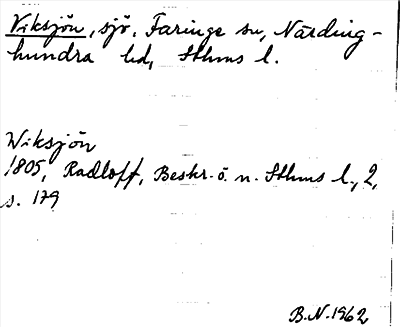 Viksjön, sjö. Faringe sn, Närding-
hundra hd, Sthms l.
Wiksjön
1805, Radloff, Beskr. ö. n. Sthms l., 2,
s. 179
B.N. 1962